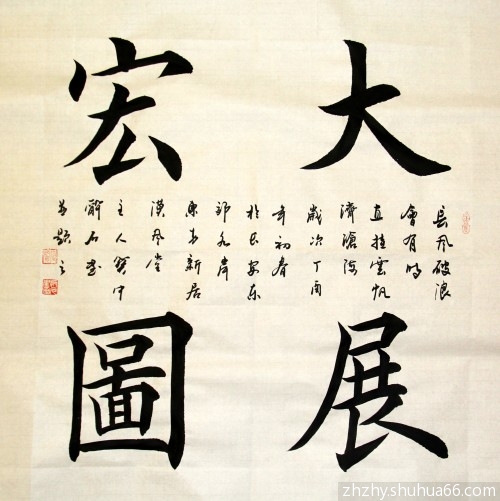 大展
宏圖
長风破浪
會有时
直挂雲帆
濟滄海
歲次丁酉
年初春
於長安東
岸
新居
漢风堂
主人
並題之
zhzhy.shuhua66.com